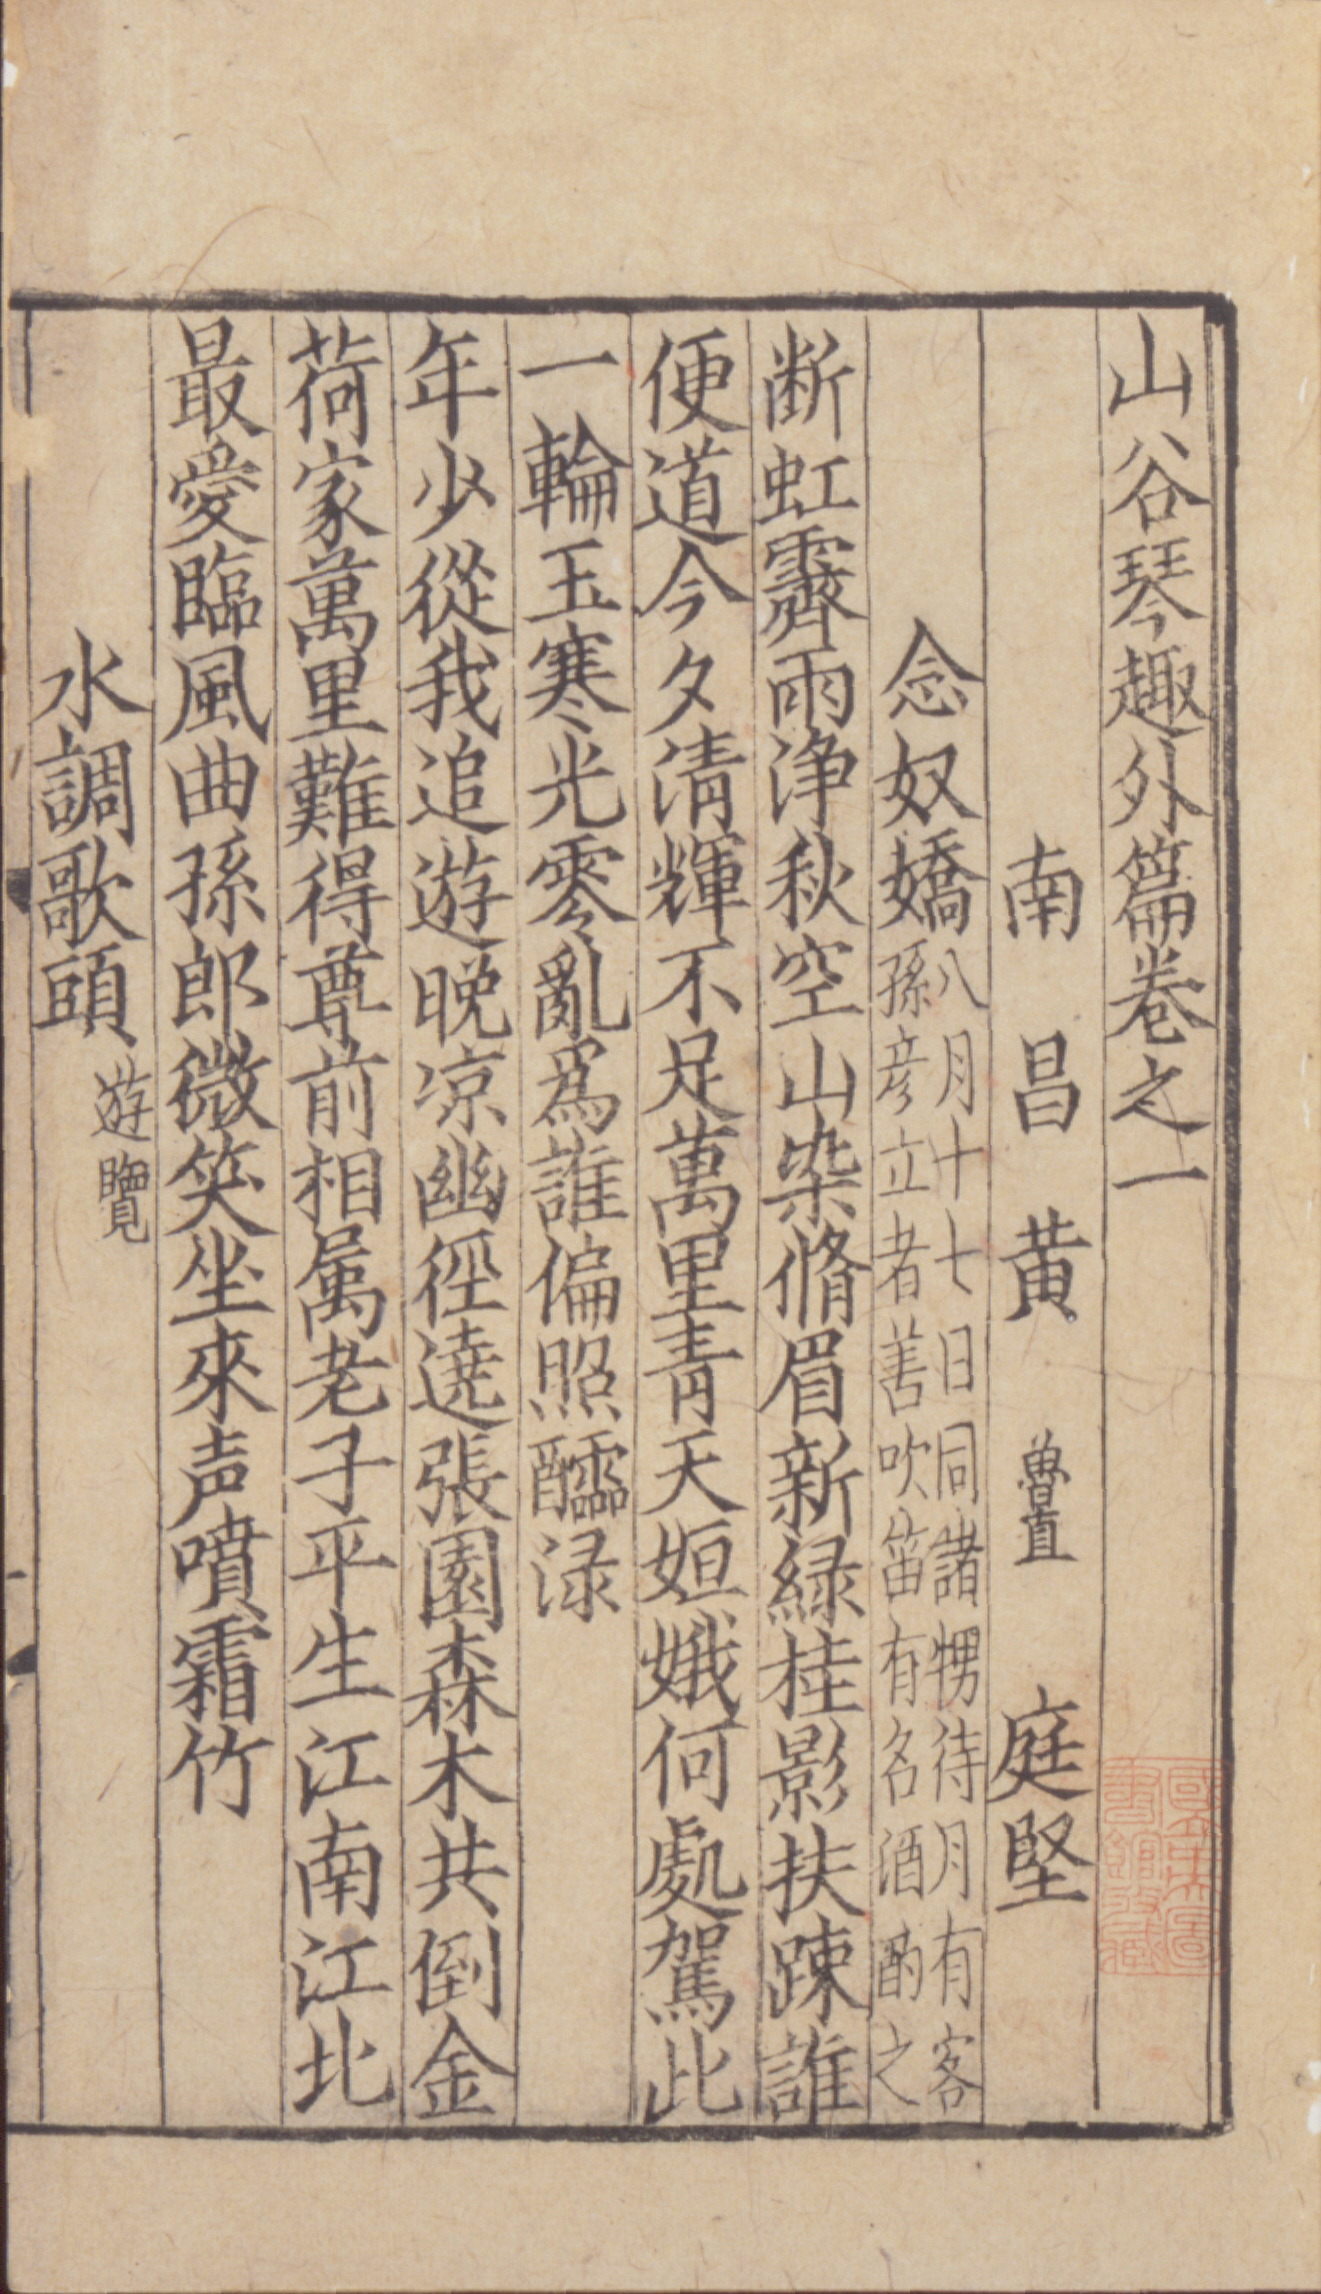 山谷琴趣外篇卷之一
南昌黃魯直庭堅
念奴嬌八月十七日同諸甥待月有客
孫彦立者善吹笛有名酒酌之
断虹霽雨浄秋空山染脩眉新緑桂影扶踈誰
便道今夕清輝不足萬里青天姮娥何處駕此
一輪玉寒光零亂爲誰偏照醽渌
年少從我追遊晚凉幽徑遶張園森木共倒金
荷家萬里難得尊前相属老子平生江南江北
最愛臨風曲孫郎微笑坐來声噴霜竹
水調歌頭遊覽